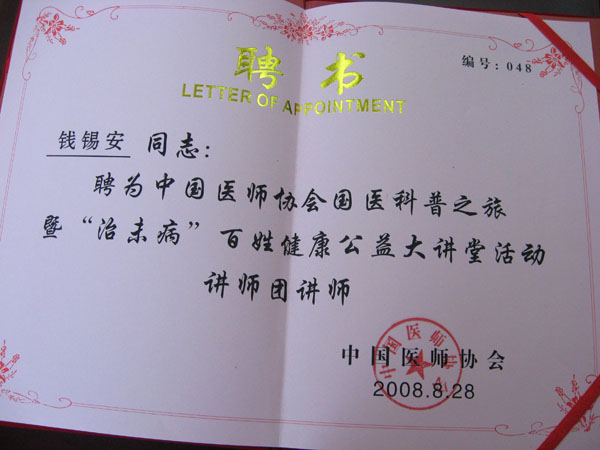 聘书
LETTER OF APPOINTMENT
编号：048
钱锡安 同志：
聘为中国医师协会国医科普之旅
暨“治未病”百姓健康公益大讲堂活动
讲师团讲师
中国医师协会
中国医师协会
2008.8.28